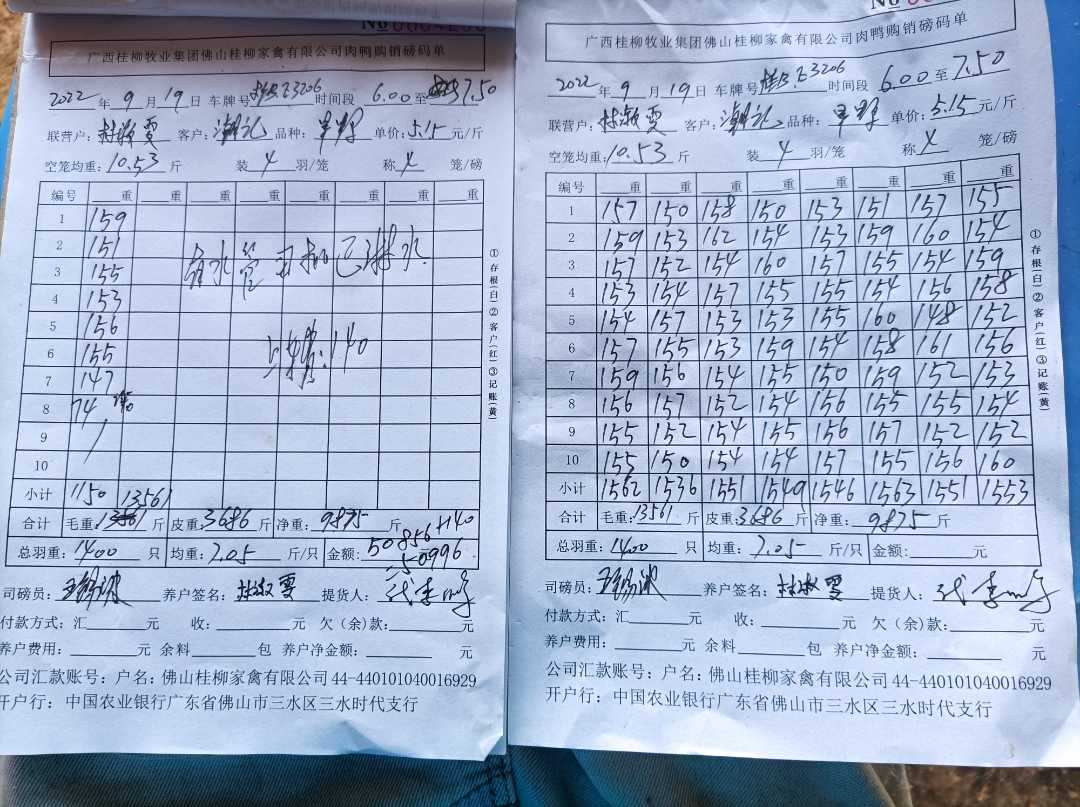 №
广西桂柳牧业集团佛山桂柳家禽有限公司肉鸭购销磅码单
2022年9月19日 车牌号 E3206 时间段 6.00至7.50
联营户: 林淑雯 客户: 潮礼 品种: 单价: 5.15元/斤
空笼均重: 10.53斤 装4羽/笼 称 笼/磅
编号 重 重 重 重 重 重 重 重
1 159
2 151
3 155
4 153
5 156
6 155
7 147
8 74
9
10
有水管 司机已淋水
140
小计 1150 13561
合计 毛重: 13561斤 皮重: 3686斤 净重: 9875斤
总羽重: 1400只 均重: 7.05斤/只 金额: 50856+140
=50996
司磅员: 养户签名: 林淑雯 提货人: 代李
付款方式: 汇 元 收: 元 欠(余)款: 元
养户费用: 元 余料 包 养户净金额: 元
公司汇款账号: 户名: 佛山桂柳家禽有限公司 44-440101040016929
开户行: 中国农业银行广东省佛山市三水区三水时代支行
①存根(白)②客户(红)③记账(黄)
№
广西桂柳牧业集团佛山桂柳家禽有限公司肉鸭购销磅码单
2022年9月19日 车牌号 E3206 时间段 6.00至7.50
联营户: 林淑雯 客户: 潮礼 品种: 单价: 5.15元/斤
空笼均重: 10.53斤 装4羽/笼 称 笼/磅
编号 重 重 重 重 重 重 重 重
1 157 150 158 150 153 151 157 155
2 159 153 162 154 153 159 160 154
3 157 152 154 160 157 155 154 159
4 153 154 157 155 155 154 156 158
5 154 157 153 153 155 160 148 152
6 157 155 153 159 154 158 161 156
7 159 156 154 155 150 159 152 153
8 156 157 152 154 156 155 155 154
9 155 152 154 155 156 157 152 152
10 155 150 154 154 157 155 156 160
小计 1562 1536 1551 1549 1546 1563 1551 1553
合计 毛重: 13561斤 皮重: 3686斤 净重: 9875斤
总羽重: 1400只 均重: 7.05斤/只 金额: 元
司磅员: 养户签名: 林淑雯 提货人: 代李
付款方式: 汇 元 收: 元 欠(余)款: 元
养户费用: 元 余料 包 养户净金额: 元
公司汇款账号: 户名: 佛山桂柳家禽有限公司 44-440101040016929
开户行: 中国农业银行广东省佛山市三水区三水时代支行
①存根(白)②客户(红)③记账(黄)
3